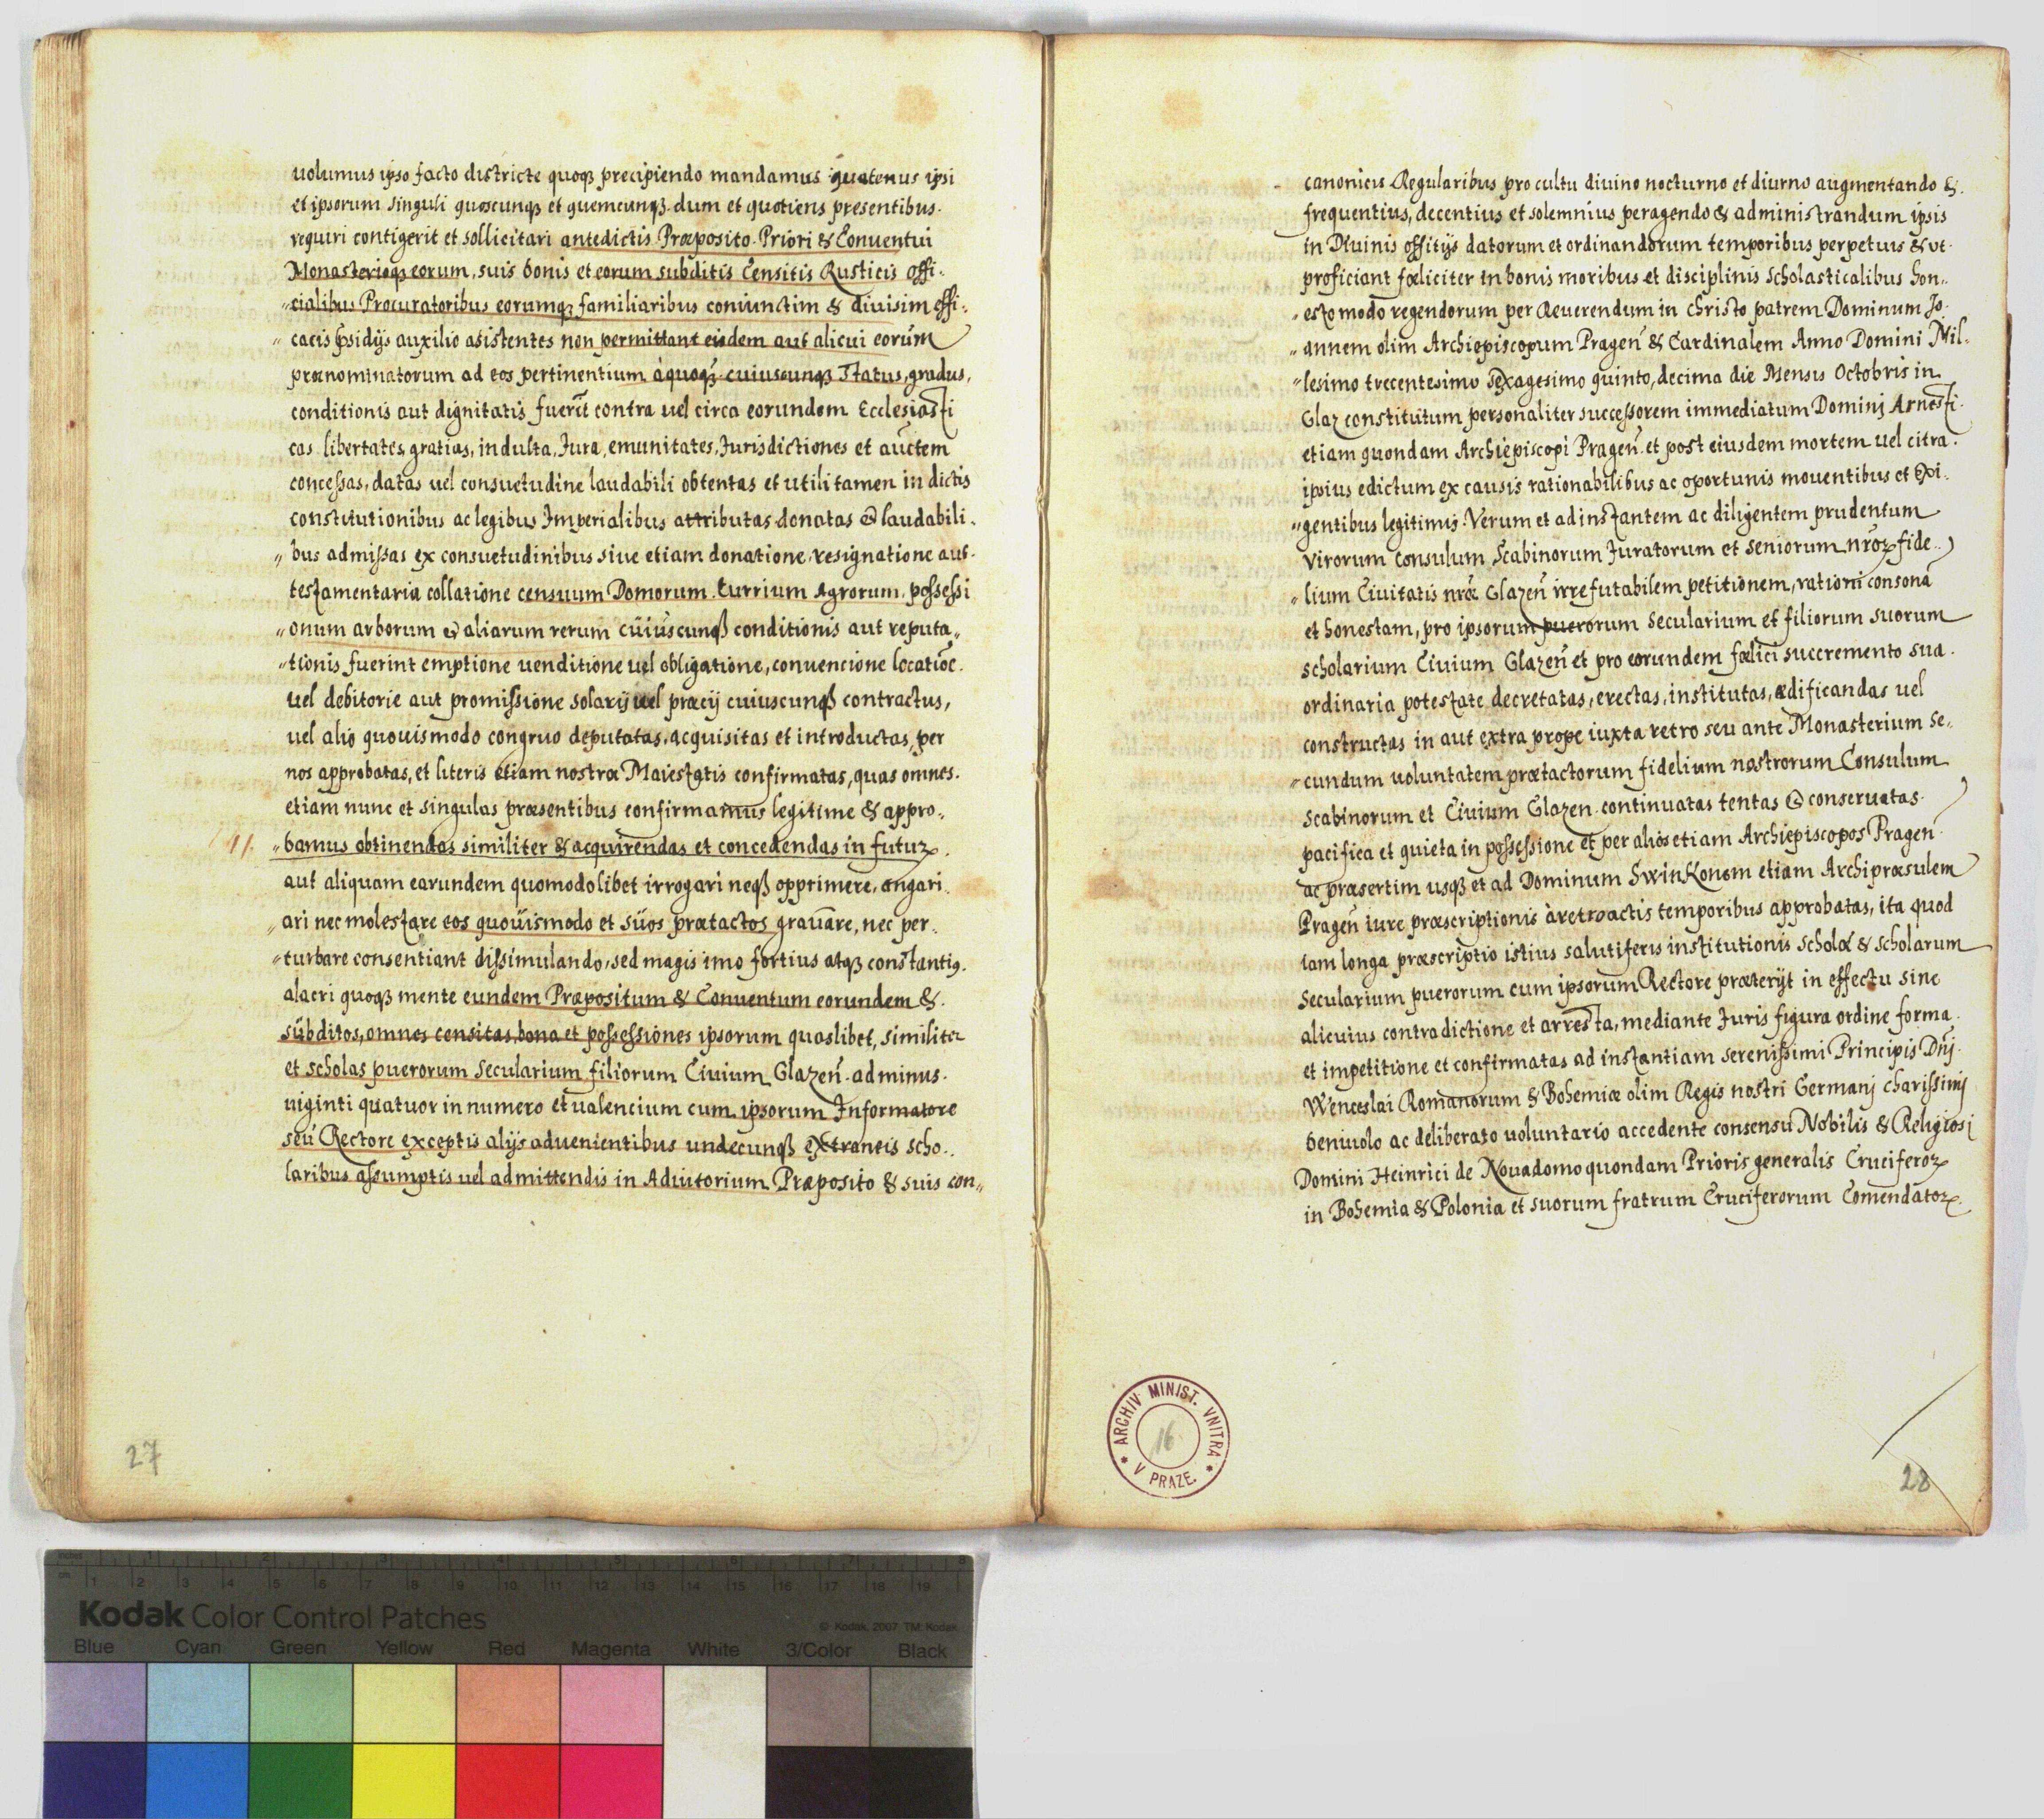 uolumus ipso facto districte quoqꝫ precipiendo mandamus quatenus ipsi
et ipsorum singuli quoscunqꝫ et quemcunqꝫ dum et quotiens presentibus.
requiri contigerit et sollicitari antedictis Præposito. Priori & Conuentui
Monasterioqꝫ eorum, suis bonis et eorum subditis Censitis Rusticis offi,,
,,cialibus Procuratoribus eorumqꝫ familiaribus coniunctim & diuisim effi,,
,,cacis psidijs auxilio asistentes non permittant eisdem aut alicui eorum
prænominatorum ad eos pertinentium àquoqꝫ cuiuscunqꝫ Status, gradus,
conditionis aut dignitatis fuerit contra uel circa eorundem Ecclesiasti
cas libertates, gratias, indulta, Jura, emunitates, Jurisdictiones et auctem
concessas, datas uel consuetudine laudabili obtentas et utili tamen in dictis
constitutionibus ac legibus Imperialibus attributas donatas & laudabili.
,,bus admissas ex consuetudinibus siue etiam donatione, resignatione aut.
testamentaria collatione censuum Domorum. Currium Agrorum. possessi
,,onum arborum & aliarum rerum cuiuscunqꝫ conditionis aut reputa,,
,,tionis fuerint emptione uenditione uel obligatione, conuencione locatioe.
uel debitorie aut promissione solarij uel præcij cuiuscunqꝫ contractus,
uel alio quouismodo congruo deputatas, acquisitas et introductas, per
nos approbatas, et literis etiam nostræ Maiestatis confirmatas, quas omnes.
etiam nunc et singulas præsentibus confirmamus legitime & appro,,
,,bamus obtinendas similiter & acquirendas et concedendas in futuꝝ.
aut aliquam earundem quomodolibet irrogari neqꝫ opprimere, angari,,
,,ari nec molestare eos quouismodo et suos prætactos grauare, nec per,,
,,turbare consentiant dissimulando, sed magis imo fortius atqꝫ constantiꝯ.
alacri quoqꝫ mente eundem Præpositum & Conuentum eorundem &.
subditos, omnes censitas, bona et possessiones ipsorum quaslibet, similiter
et scholas puerorum secularium filiorum Ciuium Glazen̄. ad minus.
uiginti quatuor in numero et ualencium cum ipsorum Informatore
seu Rectore exceptis alijs aduenientibus undecunqꝫ extraneis scho,,
laribus assumptis uel admittendis in Adiutorium Præposito & suis con,,
27
canonicis Regularibus pro cultu diuino nocturno et diurno augmentando &.
frequentius, decentius et solemnius peragendo & administrandum ipsis
in Diuinis offitijs datorum et ordinandorum temporibus perpetuis & vt.
proficiant fœliciter in bonis moribus et disciplinis scholasticalibus hon,,
,,esto modo regendorum per Reuerendum in Christo patrem Dominum Jo.
,,annem olim Archiepiscopum Pragen̄ & Cardinalem Anno Domini Mil,,
,,lesimo trecentesimo sexagesimo quinto, decima die Mensis Octobris in
Glaz constitutum personaliter successorem immediatum Dominj Arnesti.
etiam quondam Archiepiscopi Pragen̄. et post eiusdem mortem uel citra.
ipsius edictum ex causis rationabilibus ac oportunis mouentibus et exi,,
,,gentibus legitimis. Verum et ad instantem ac diligentem prudentum
virorum Consulum Scabinorum Juratorum et seniorum nr̄oꝝ fide,,
,,lium Ciuitatis nr̄æ Glazen̄ irrefutabilem petitionem, rationi consonā
et honestam, pro ipsorum puerorum secularium et filiorum suorum
scholarium Ciuium Glazen̄ et pro eorundem fœlici succremento sua.
ordinaria potestate decretatas, erectas, institutas, ædificandas uel
constructas in aut extra prope iuxta retro seu ante Monasterium se,,
,,cundum uoluntatem prætactorum fidelium nostrorum Consulum
Scabinorum et Ciuium Glazen. continuatas tentas & conseruatas.
pacifica et quieta in possessione et per alios etiam Archiepiscopos Pragen̄.
ac præsertim usqꝫ et ad Dominum Swinkonem etiam Archipræsulem
Pragen̄ iure præscriptionis àretroactis temporibus approbatas, ita quod
iam longa præscriptio istius salutiferis institutionis scholæ & scholarum
secularium puerorum cum ipsorum Rectore præterijt in effectu sine
alicuius contradictione et arresta, mediante Juris figura ordine forma.
et impetitione et confirmatas ad instantiam serenissimi Principis Dn̄j.
Wenceslai Romanorum & Bohemiæ olim Regis nostri Germanj charissimj
beniuolo ac deliberato uoluntario accedente consensu Nobilis & Religiosj
Domini Heinrici de Nouadomo quondam Prioris generalis Cruciferoꝝ
in Bohemia & Polonia et suorum fratrum Cruciferorum Comendatoꝝ.
ARCHIV MINIST. VNITRA V PRAZE.
16
28
inches
cm
Kodak Color Control Patches
© Kodak, 2007 TM: Kodak
Blue Cyan Green Yellow Red Magenta White 3/Color Black